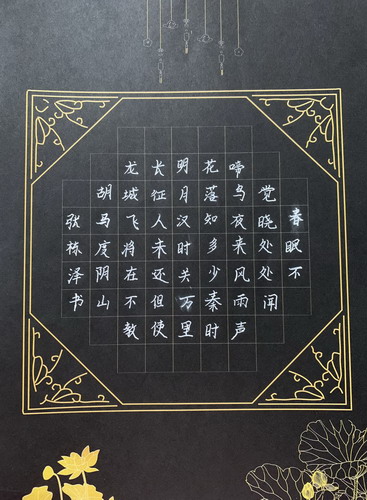 春眠不
觉晓处处闻
啼鸟夜来风雨声
花落知多少秦时
明月汉时关万里
长征人未还但使
龙城飞将在不教
胡马度阴山
张栋泽书